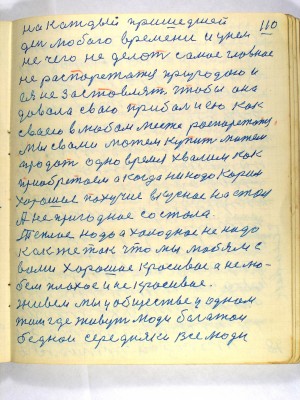 110
на каждый пришедшей
ден любого времени и у нем
не чего не делот самое главное
не распорежатця природою и
ея не заставлят чтобы она
давала сваю прибал и ею как
сваею в любом месте распарежатц
мы с вами можем купит можем
продат одно время хвалим как
приобретаем а когда не надо Корим
Хорошае пахучие вкусное на стол
А не пригодное со стола.
Теплое нодо а холодное не надо
как же так что мы любям с
вами хорошае красивае а не лю-
бем плохое и не красивае.
живем мы у обществе у одном
там где живут люди багатой
бедной середняки все люди